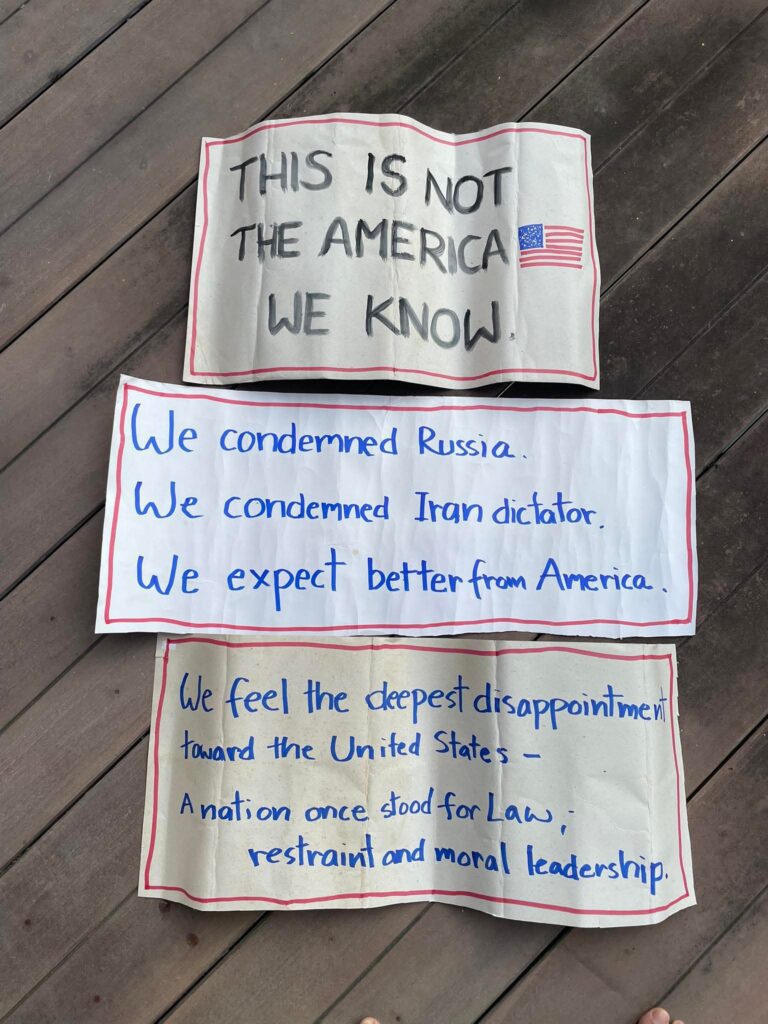 THIS IS NOT
THE AMERICA
WE KNOW.
We condemned Russia.
We condemned Iran dictator.
We expect better from America.
We feel the deepest disappointment
toward the United States –
A nation once stood for Law,;
restraint and moral leadership.